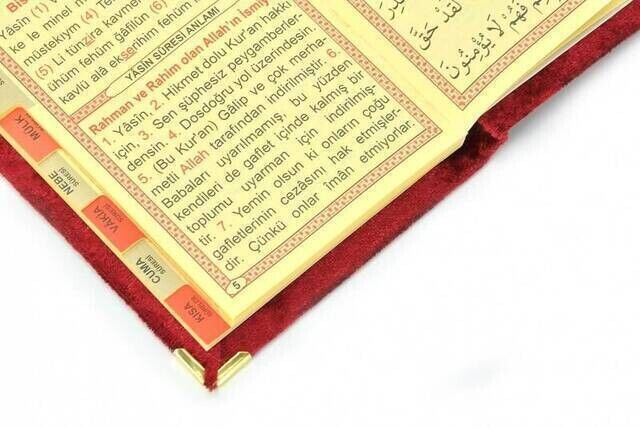 Yâsîn (1) V
ke le minel m
müstekıym (4) Te
(5) Li tünzira kavme
ühüm fehüm gâfilûn (6)
kavlü alâ ekserihim fehüm
YÂSİN SÛRESİ ANLAMI
Rahman ve Rahim olan Allah'ın İsmiy
1. Yâsîn, 2. Hikmet dolu Kur'an hakkı
için, 3. Sen şüphesiz peygamberler-
densin. 4. Dosdoğru yol üzerindesin.
5. (Bu Kur'an) Gâlip ve çok merha-
metli Allah tarafından indirilmiştir. 6.
Babaları uyarılmamış, bu yüzden
kendileri de gaflet içinde kalmış bir
toplumu uyarman için indirilmiş-
tir. 7. Yemin olsun ki onların çoğu
gafletlerinin cezasını hak etmişler-
dir. Çünkü onlar îmân etmiyorlar.
5
MÜLK
NEBE
SÛRESİ
VÂKIA
SÛRESİ
CUMA
SÛRESİ
KISA
SÛRELER
لَقَدْ حَقَّ
فَهُمْ لَا يُؤْمِنُونَ